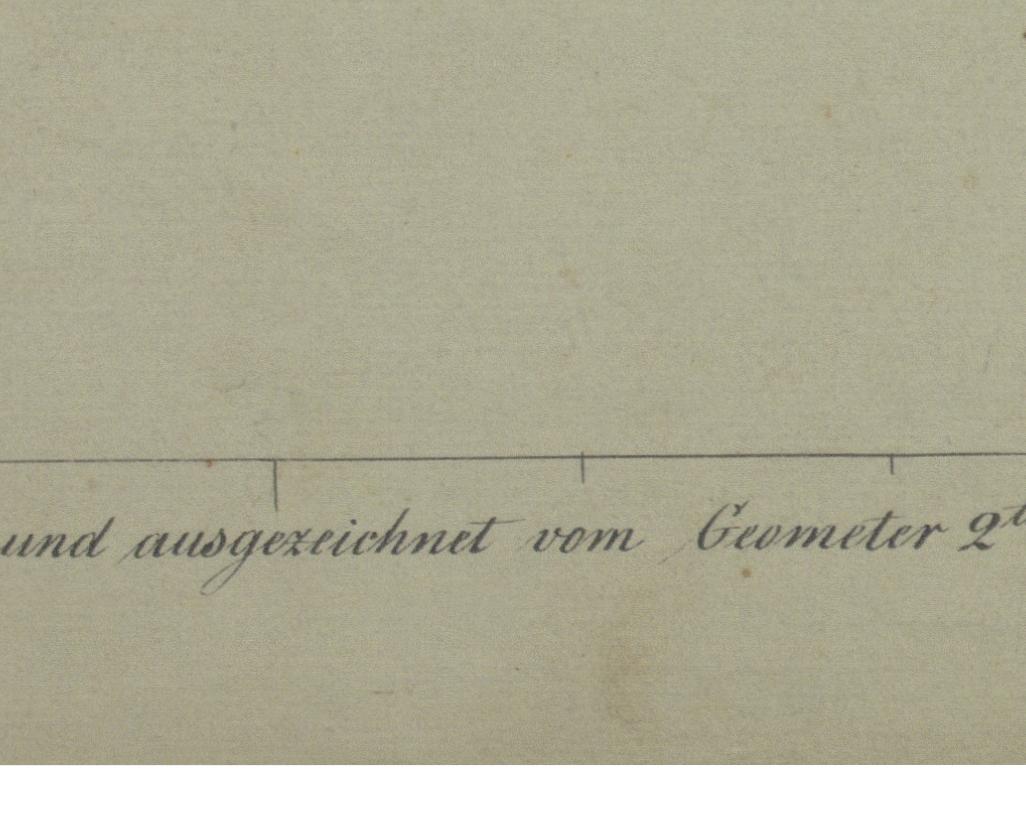 und ausgezeichnet vom Geometer 2t